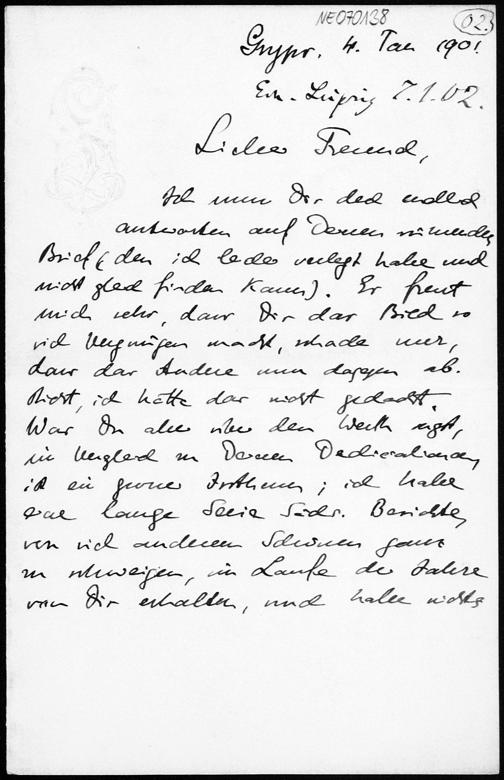 NE070138
02.
Grypsw. 4. Jan 1901.
Erh. Leipzig 7.1.02.
Lieber Freund,
Ich muss Dir doch endlich
antworten auf Deinen
Brief (den ich leider verlegt habe und
nicht gleich finden kann). Es freut
mich sehr, dass Dir das Bild so
viel Vergnügen macht, schade nur,
dass das Andere nun dagegen ab-
sticht, ich hätte das nicht gedacht.
Was Du aber über den Werth sagst,
im Vergleich zu Deinen Dedicationen
ist ein grosser Irrthum; ich habe
eine lange Serie Sächs. Berichte,
von viel anderem Schönen ganz
zu schweigen, im Laufe der Jahre
von Dir erhalten, und habe nichts